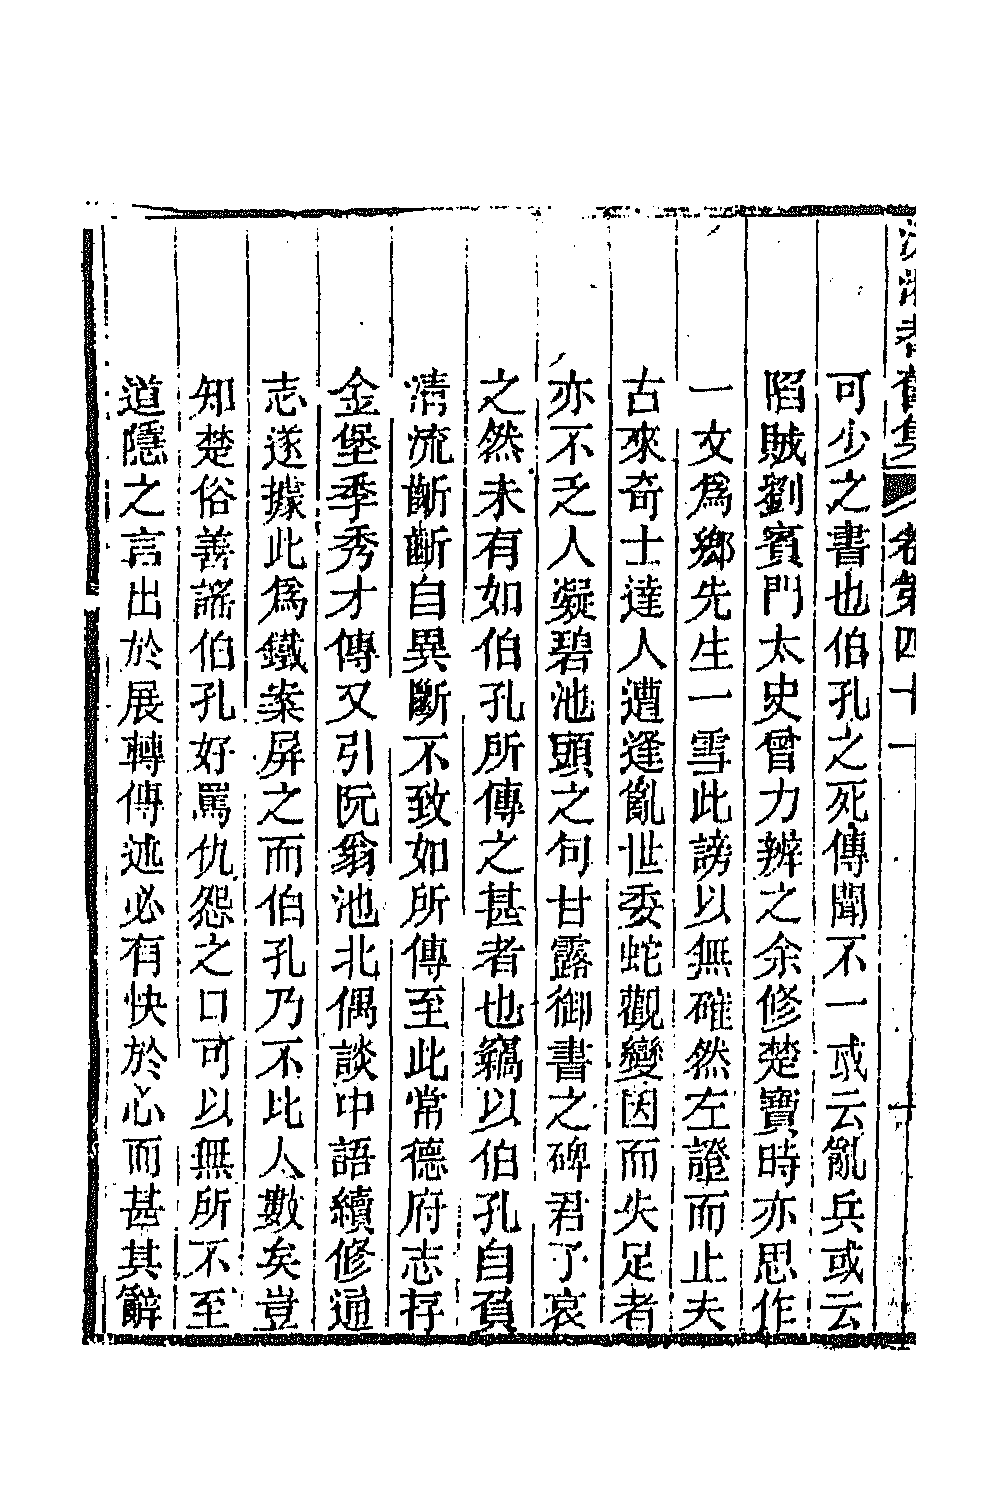 沅湘耆舊集 卷第四十一 十
可少之書也伯孔之死傳聞不一或云亂兵或云
陷賊劉賓門太史曾力辨之余修楚寶時亦思作
一文爲鄉先生一雪此謗以無確然左證而止夫
古來奇士達人遭逢亂世委蛇觀變因而失足者
亦不乏人凝碧池頭之句甘露御書之碑君子哀
之然未有如伯孔所傳之甚者也竊以伯孔自負
清流齗齗自異斷不致如所傳至此常德府志存
金堡季秀才傳又引阮翁池北偶談中語續修通
志遂據此爲鐵案屏之而伯孔乃不比人數矣豈
知楚俗善謠伯孔好罵仇怨之口可以無所不至
道隱之言出於展轉傳述必有快於心而甚其辭